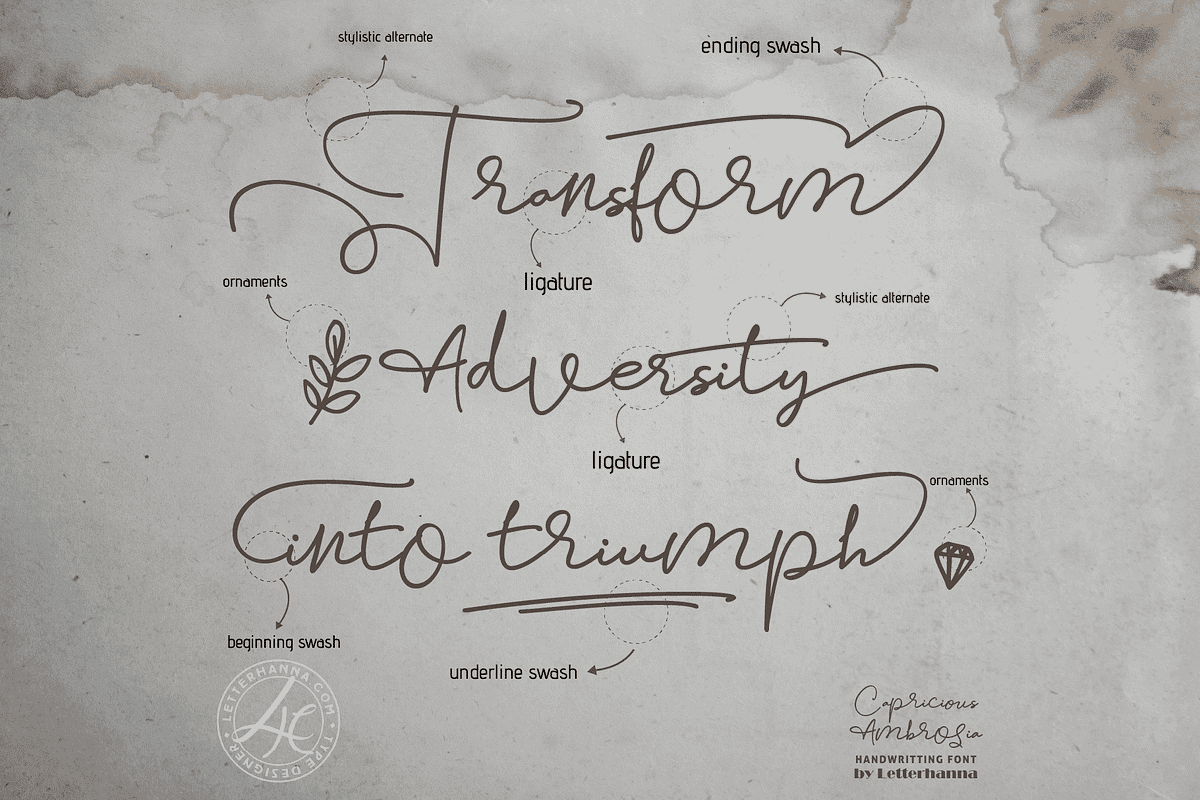 stylistic alternate
ending swash
Transform
ligature
ornaments
stylistic alternate
Adversity
ligature
into triumph
ornaments
beginning swash
underline swash
LETTERHANNA.COM • TYPE DESIGNER •
LH
Capricious
Ambrosia
HANDWRITTING FONT
by Letterhanna